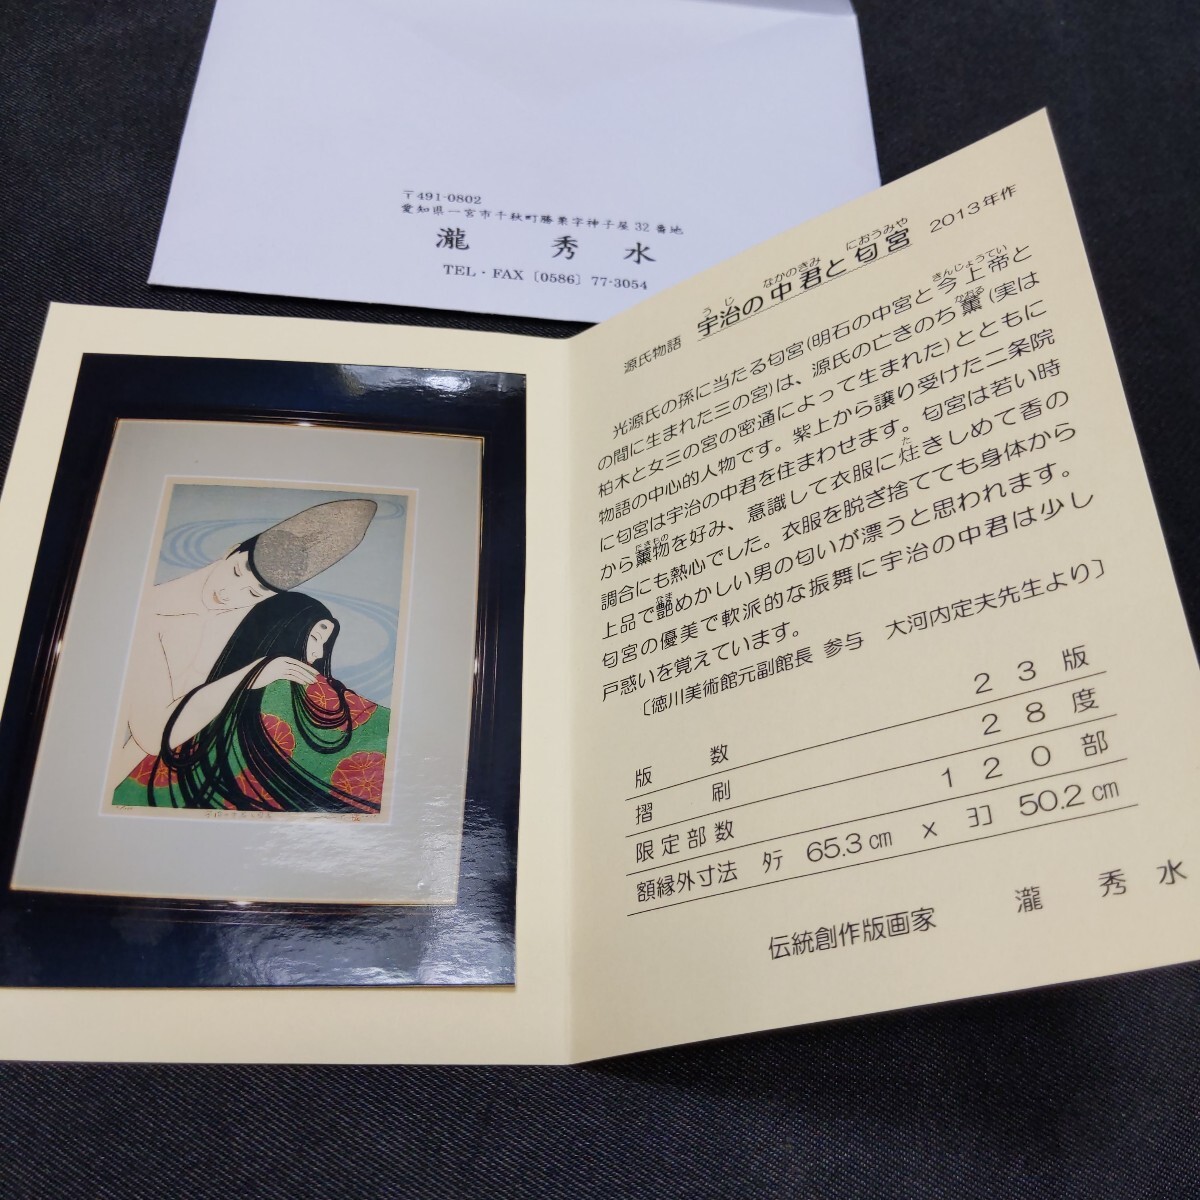 〒491-0802
愛知県一宮市千秋町勝栗字神子屋32番地
瀧 秀 水
TEL・FAX〔0586〕77-3054
源氏物語 宇治の中君と匂宮 2013年作
うじ なかのきみ におうみや
光源氏の孫に当たる匂宮(明石の中宮と今上帝と
きんじょうてい
の間に生まれた三の宮)は、源氏の亡きのち薫(実は
かおる
柏木と女三の宮の密通によって生まれた)とともに
物語の中心的人物です。紫上から譲り受けた二条院
に匂宮は宇治の中君を住まわせます。匂宮は若い時
から薫物を好み、意識して衣服に炷きしめて香の
たきもの た
調合にも熱心でした。衣服を脱ぎ捨てても身体から
上品で艶めかしい男の匂いが漂うと思われます。
なま
匂宮の優美で軟派的な振舞に宇治の中君は少し
戸惑いを覚えています。
〔徳川美術館元副館長 参与 大河内定夫先生より〕
版数 23版
摺刷 28度
限定部数 120部
額縁外寸法 タテ 65.3cm × ヨコ 50.2cm
伝統創作版画家 瀧 秀 水